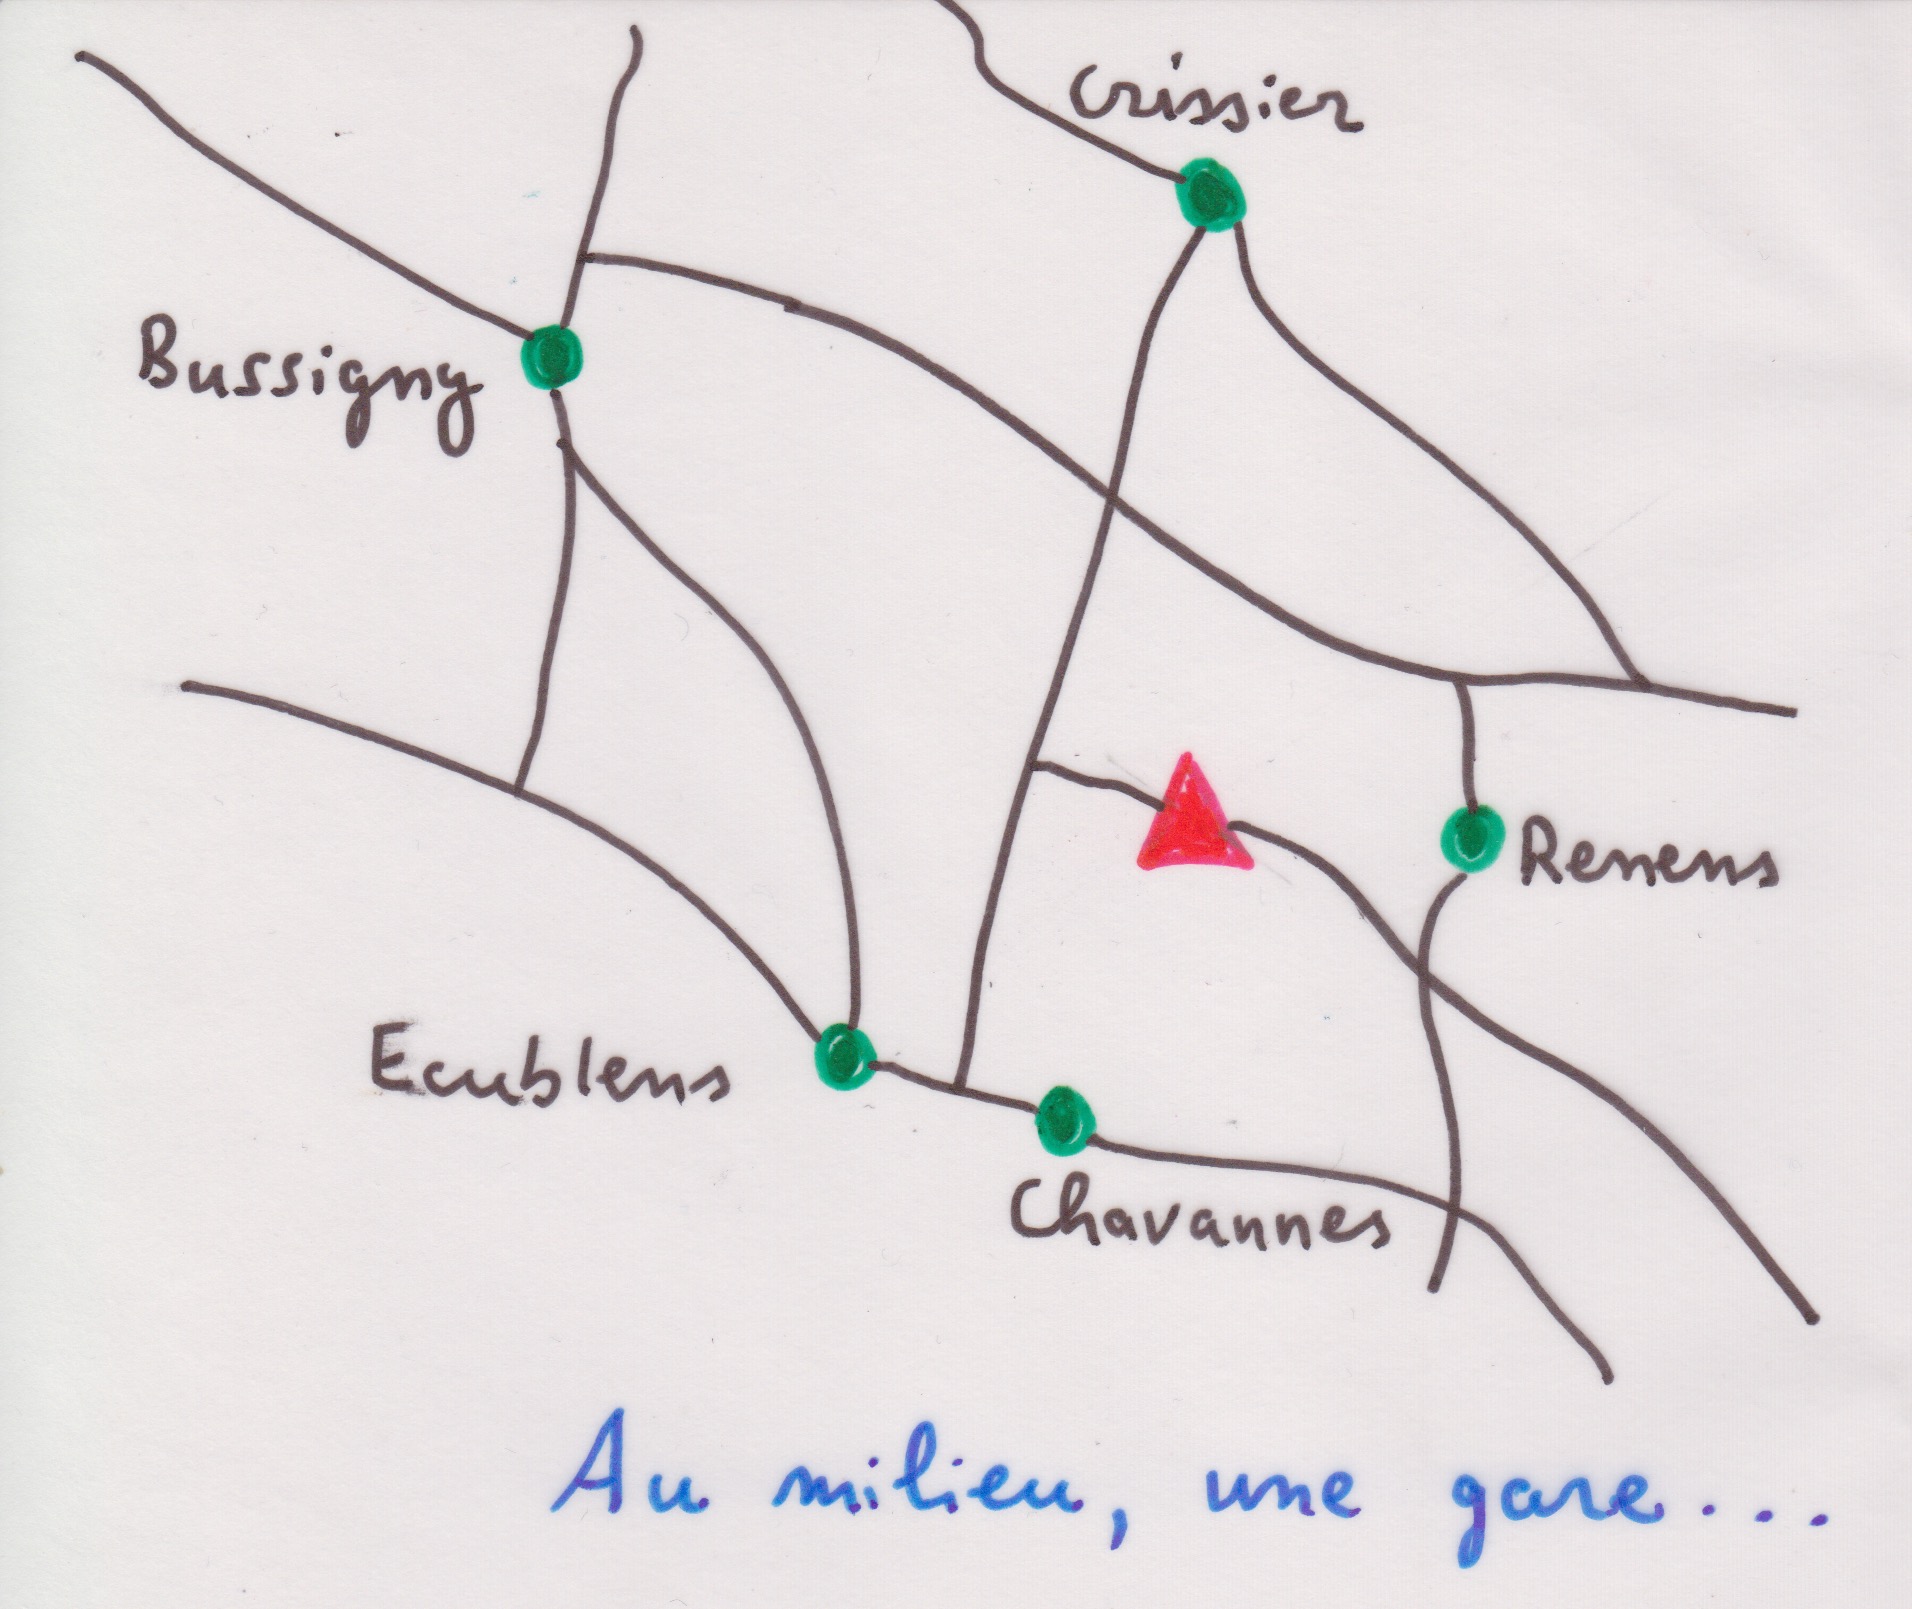 Crissier
Bussigny
Renens
Ecublens
Chavannes
Au milieu, une gare...